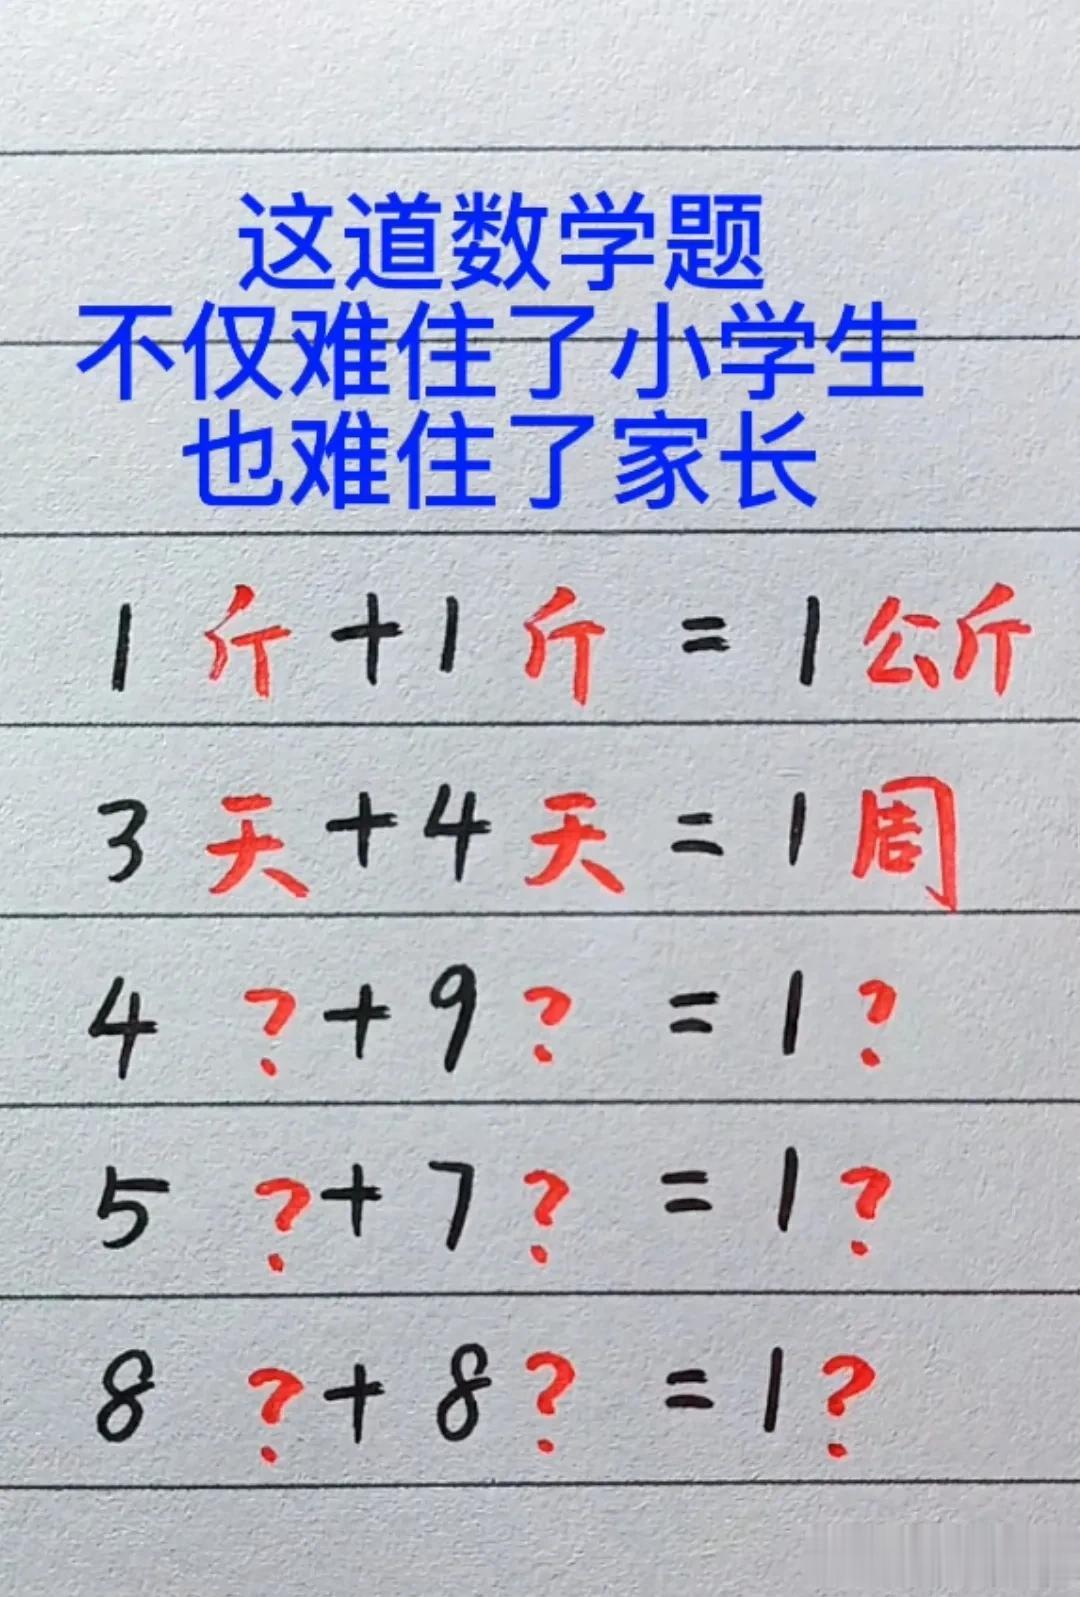 这道数学题
不仅难住了小学生
也难住了家长
1斤+1斤=1公斤
3天+4天=1周
4?+9?=1?
5?+7?=1?
8?+8?=1?